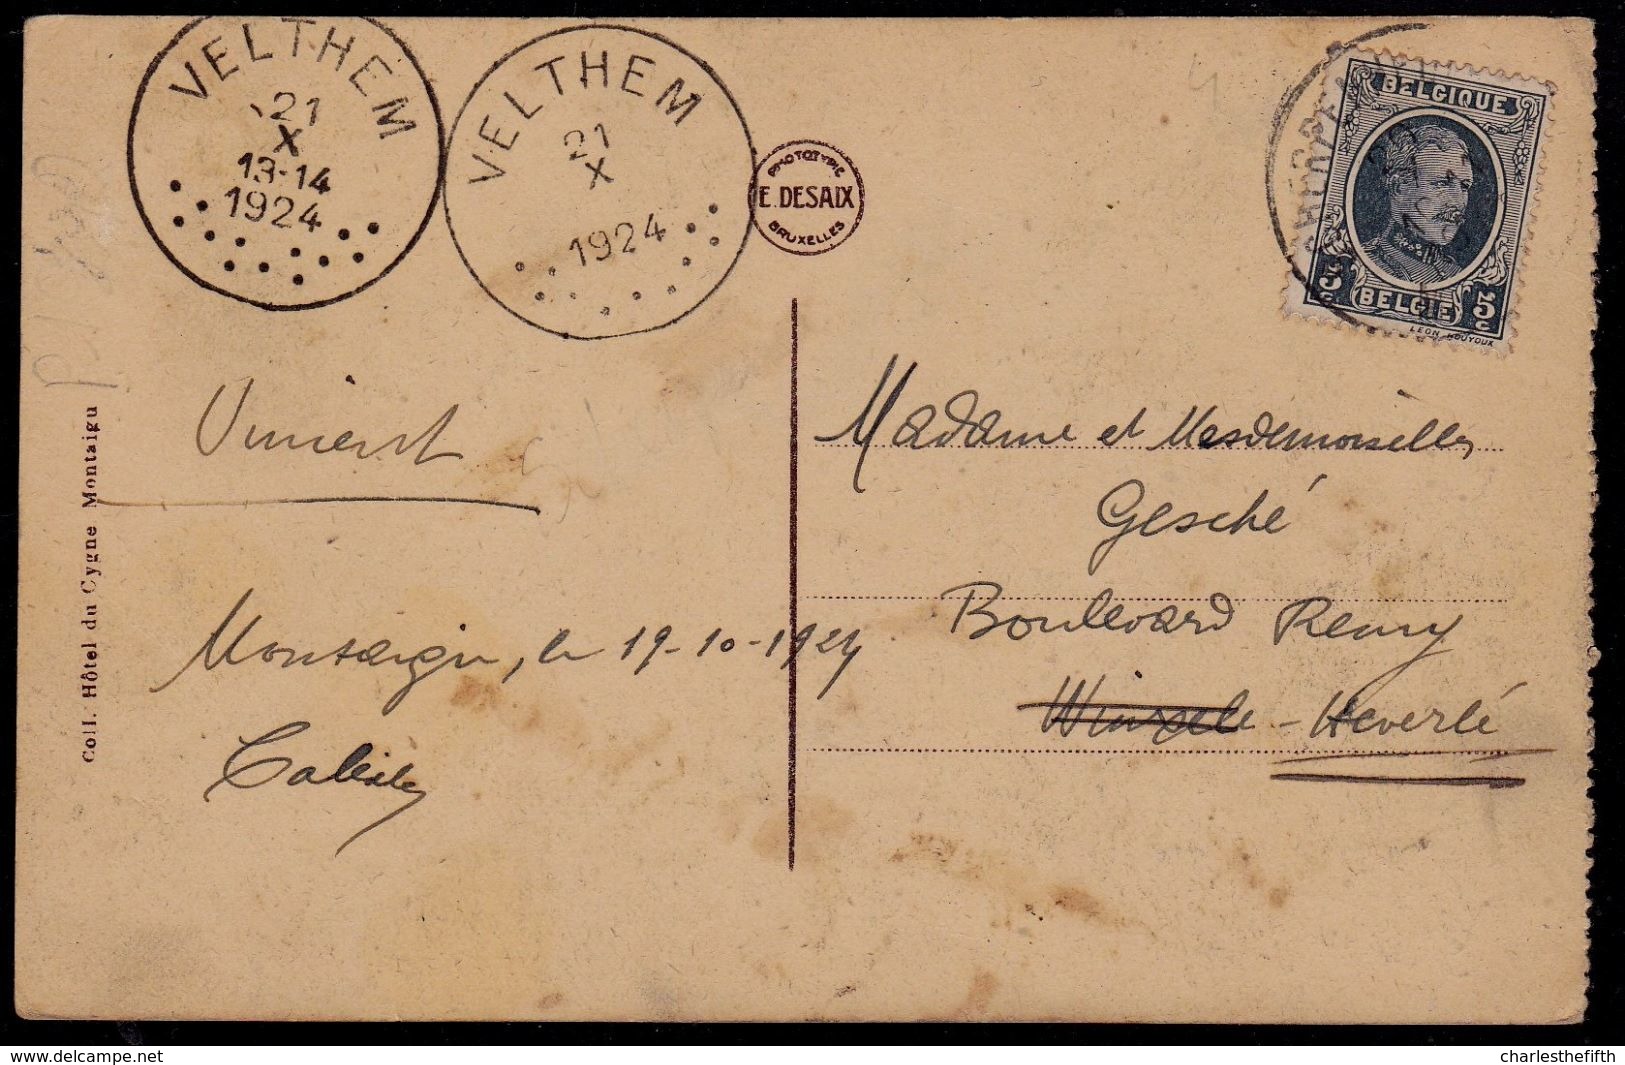 VELTHEM
21
X
13-14
1924
VELTHEM
21
X
1924
PHOTOTYPIE
E. DESAIX
BRUXELLES
BELGIQUE
5c BELGIE 5c
LEON HOUYOUX
Vincent
Montaigu, le 19-10-1924
Madame et Mesdemoiselles
Gesché
Boulevard Remy
Winxele - Heverlé
Coll. Hôtel du Cygne Montaigu
delcampe.net
charlesthefifth